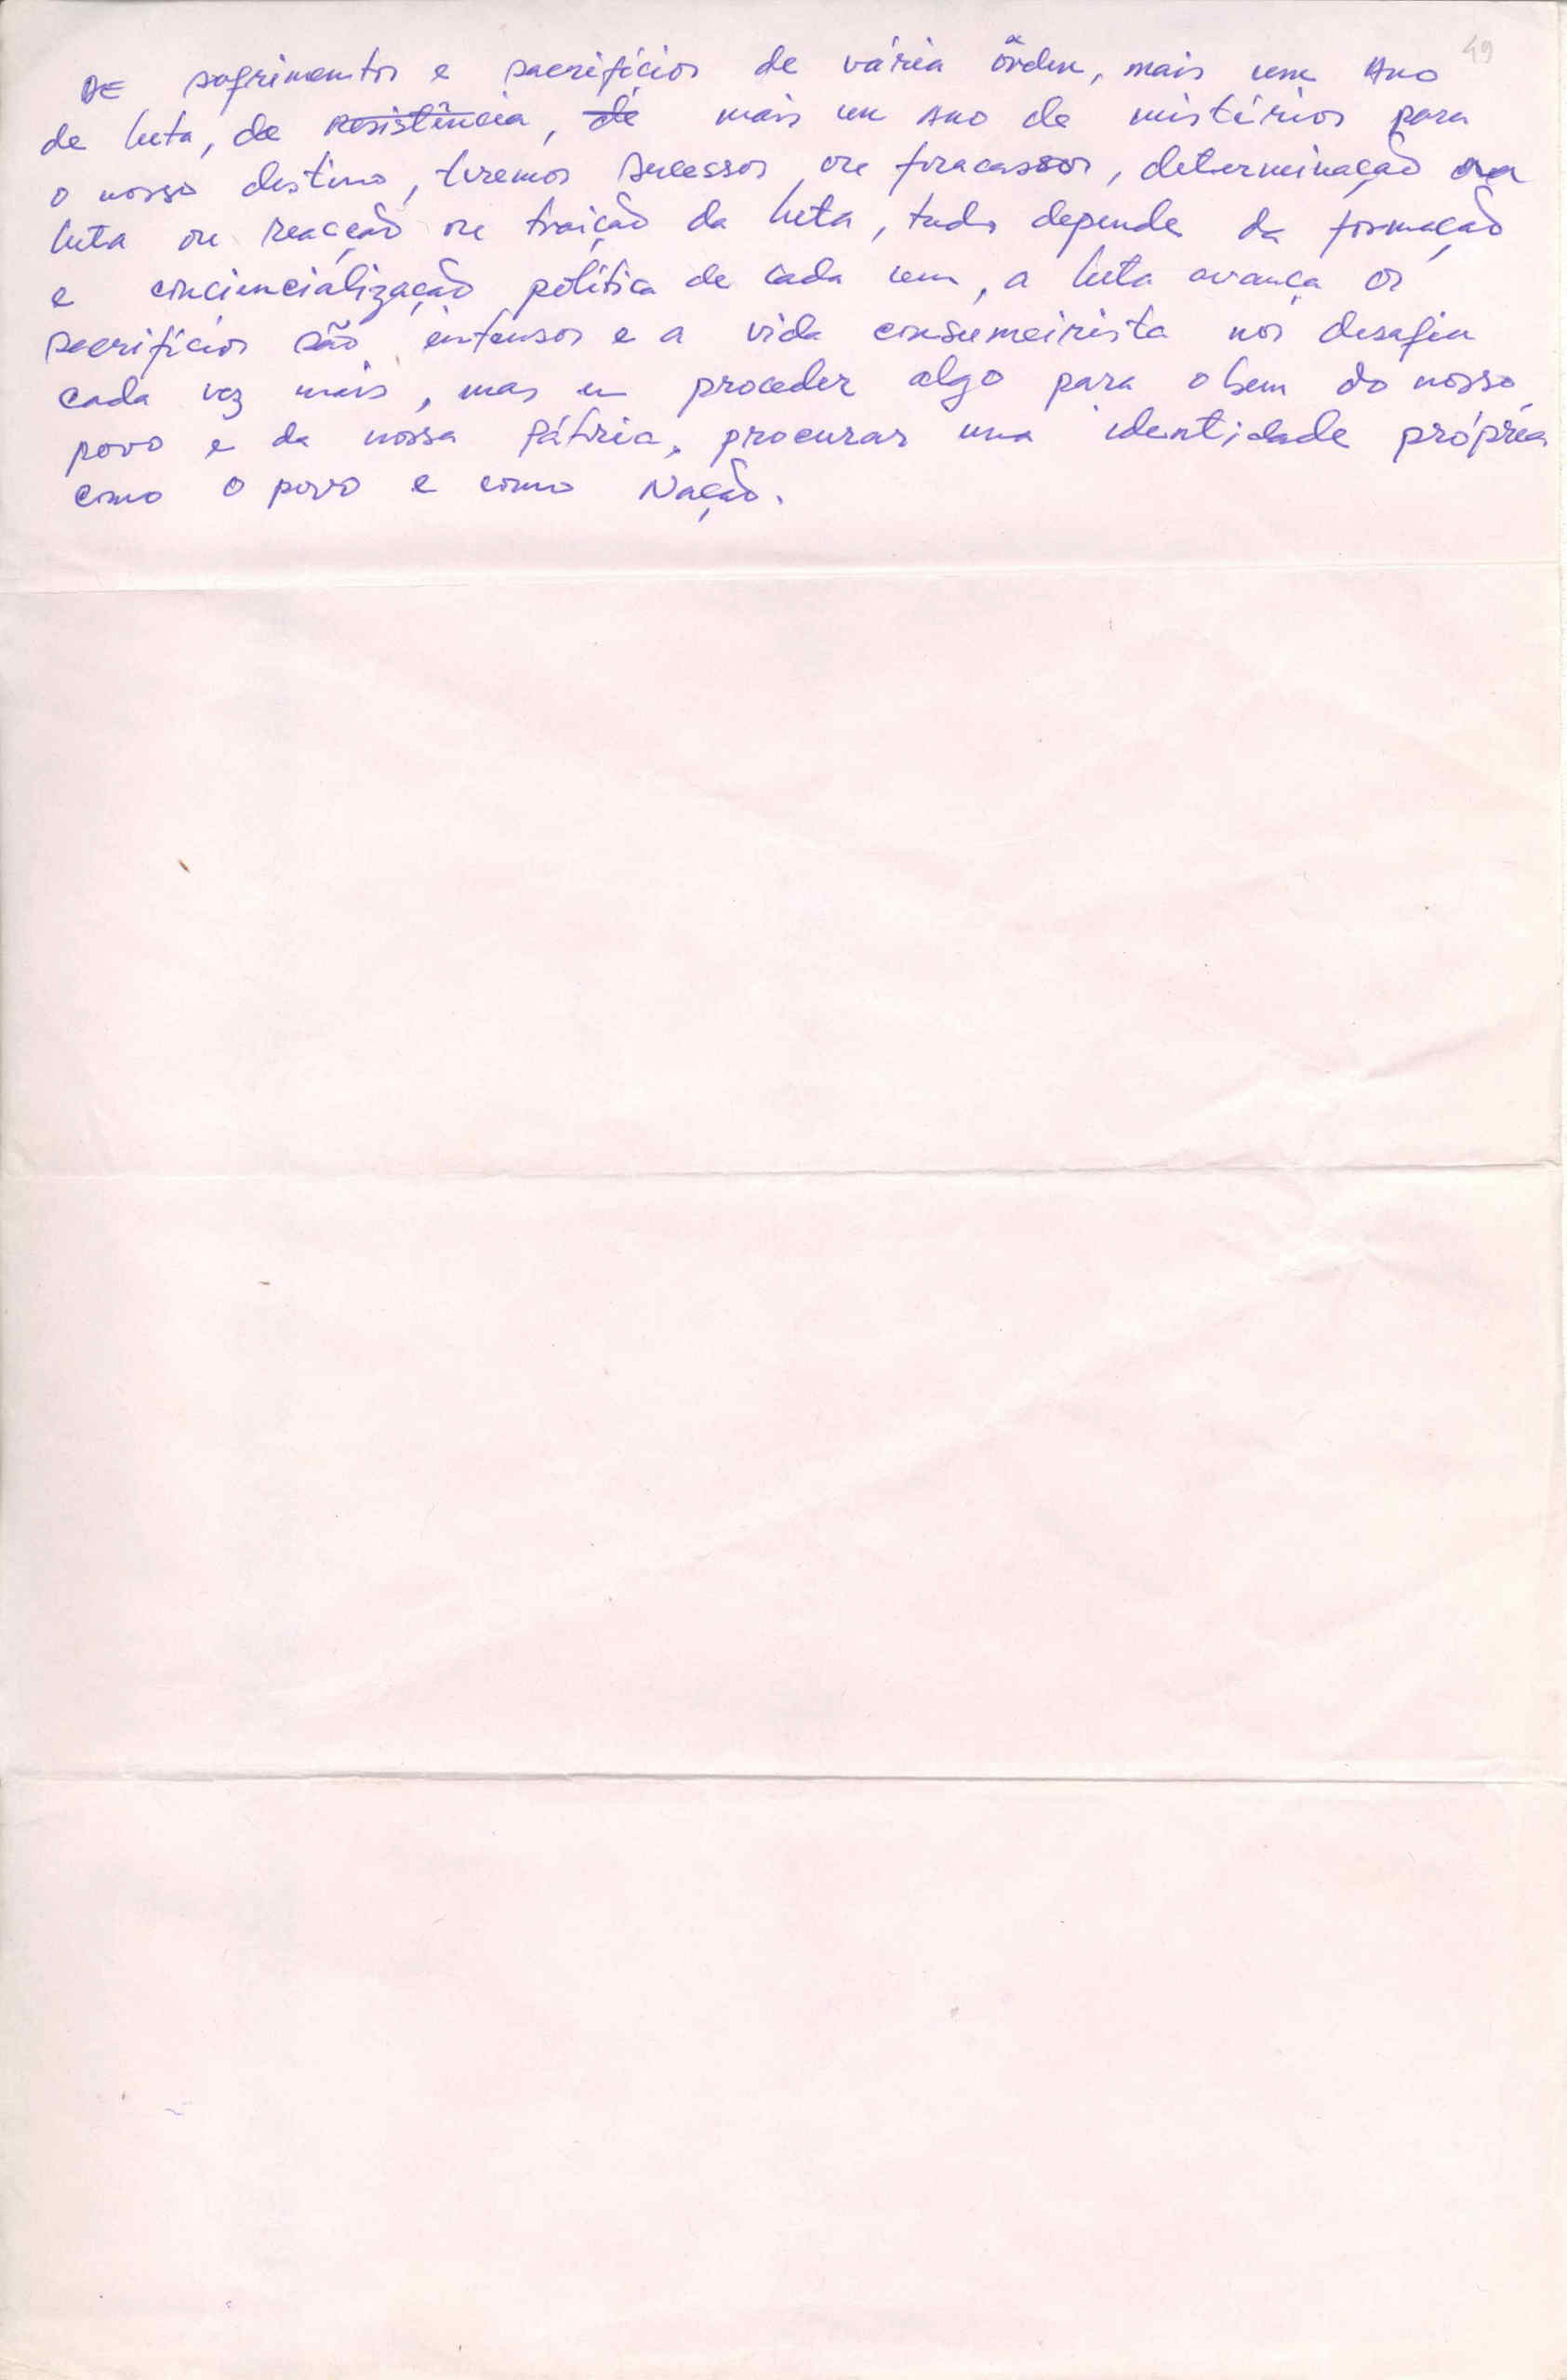 49
DE sofrimentos e sacrifícios de vária ôrdem, mais um Ano
de luta, de resistência, de mais um Ano de mistérios para
o nosso destino, teremos sucessos ou fracassos, determinação na
luta ou reacção ou traição da luta, tudo depende da formação
e conciencialização política de cada um, a luta avança os
sacrifícios são intensos e a vida consumeirista nos desafia
cada vez mais, mas em proceder algo para o bem do nosso
povo e da nossa Pátria, procurar uma identidade própria
como o povo e como Nação.